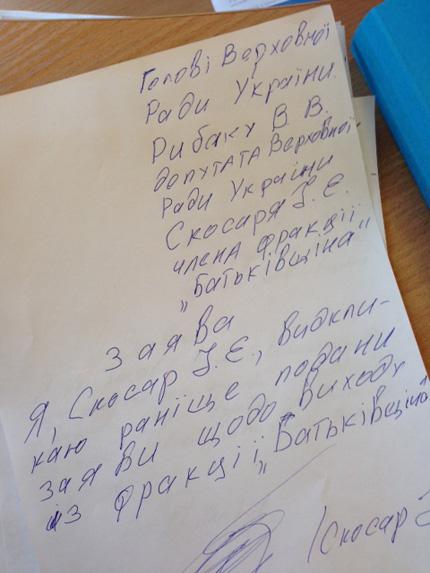 Голові Верховної
Ради України
Рибаку В. В.
депутата Верховної
Ради України
Скосаря І. Є.
члена фракції
"Батьківщина"
заява
Я, Скосар І. Є., відкли-
каю раніше подани
заяви щодо виходу
із фракції "Батьківщина
/Скосар